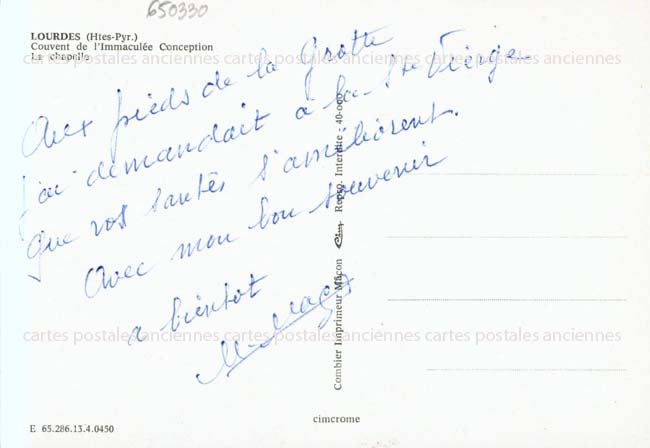 650330
LOURDES (Htes-Pyr.)
Couvent de l'Immaculée Conception
La chapelle
cartes postales anciennes cartes postales anciennes cartes postales anciennes
Aux pieds de la Grotte
j'ai demandait à la Ste Vierge
que vos santés s'améliorent.
Avec mon bon souvenir
a bientot
Combier Imprimeur Mâcon Cim Repro. Interdite : 40-000
cartes postales anciennes cartes postales anciennes cartes postales anciennes
cimcrome
E 65.286.13.4.0450